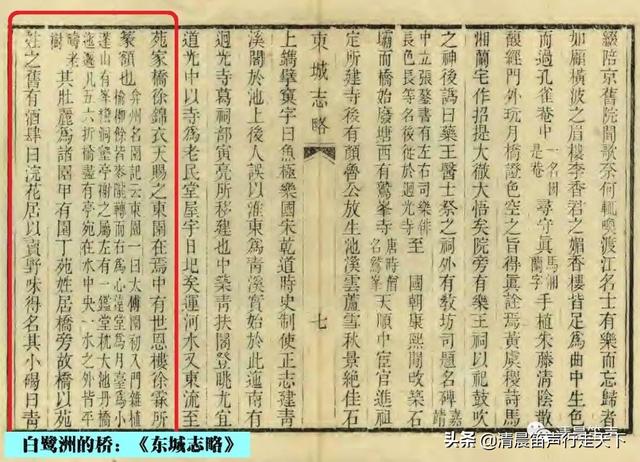 綴陪京舊院聞歌奈何輒喚渡江名士有樂而忘歸者
如顧橫波之眉樓李香君之媚香樓皆足為曲中生色
而過孔雀庵中一名圓是庵尋守真馬湘蘭字手植朱藤清陰散
馥經門外玩月橋證色空之旨得真詮焉黃虞稷詩馬
湘蘭宅作招提大徹大悟矣院旁有樂王祠以祀鼓吹
之神後譌曰藥王醫士祭之祠外有教坊司題名碑嘉靖
中立張鏊書有左右司樂俳長色長等名後徙於迴光寺至 國朝康熙間改築石
壩而橋始廢塘西有鷲峯寺唐時舊名鷲峯天順中宦官進祖
定所建寺後有顏魯公放生池溪雲蘆雪秋景絕佳石
東城志略 七
上鐫擘窠字曰魚極樂國宋乾道時史制使正志建青
溪閣於池上後人誤以淮東為青溪實始於此迤南有
迴光寺葛祠部寅亮所移建也中築青扶閣登眺尤宜
道光中以寺為老民堂屋宇日圮矣運河水又東流至
苑家橋徐錦衣天賜之東園在焉中有世恩樓徐霖所
篆額也弇州名園記云東園一曰太傅園初入門雜植榆柳餘皆麥隴轉而右為心遠堂為月臺為小
蓬山有峯巒洞壑亭榭之屬左有一鑑堂枕大池丹橋迤邐凡五六折楯盡有亭宛在水中央一水之外皆平
樹其壯麗為諸園甲有園丁苑姓居橋旁故橋以苑
姓之舊有酒肆曰浣花居以賣野味得名其小碭曰青
白鹭洲的桥：《东城志略》
头条 @清晨笛声行走天下